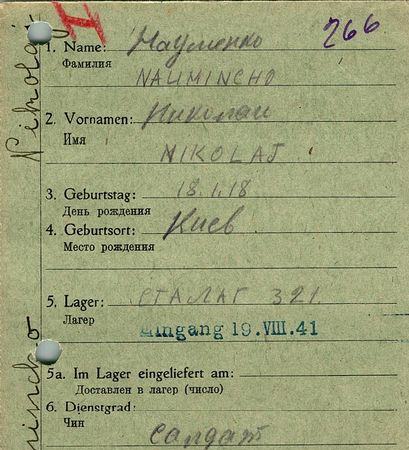 I
266
1. Name: Науменко
Фамилия
NAUMINCHO
2. Vornamen: Николаи
Имя
NIKOLAJ
3. Geburtstag: 18.1.18
День рождения
4. Geburtsort: Киев
Место рождения
5. Lager: СТАЛАГ 321.
Лагер
Eingang 19. VIII. 41
5a. Im Lager eingeliefert am:
Доставлен в лагер (число)
6. Dienstgrad:
Чин
Салдат
Nikolaj